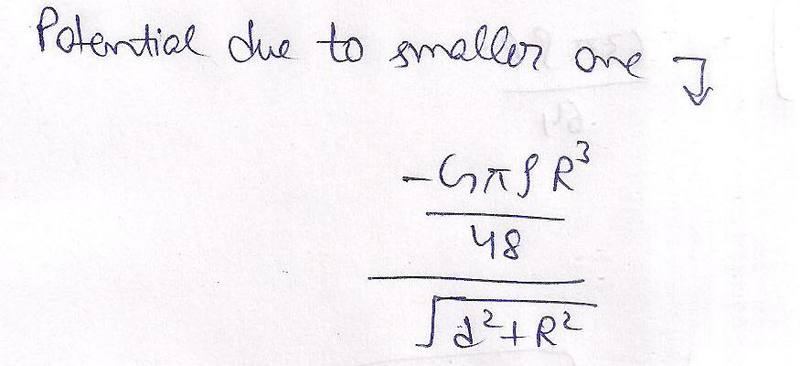 Potential due to smaller one ↴
-GπρR³
48
√d²+R²